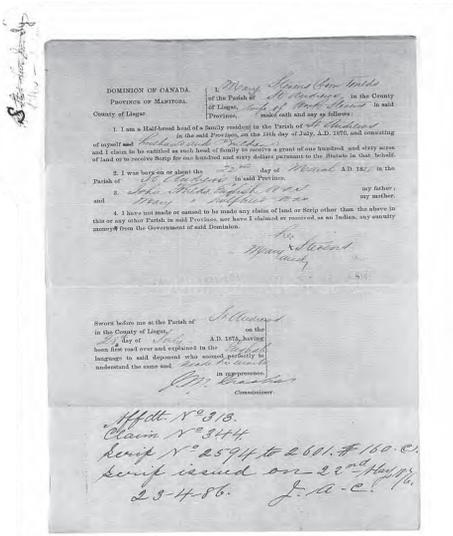 DOMINION OF CANADA.
PROVINCE OF MANITOBA.
County of Lisgar.
I, Mary Stevens born
of the Parish of St Andrews, in the County
of Lisgar, wife of Stevens in said
Province, make oath and say as follows:
1. I am a Half-breed head of a family resident in the Parish of St Andrews
in the said Province, on the 15th day of July, A.D. 1870, and consisting
of myself and husband and children
and I claim to be entitled as such head of family to receive a grant of one hundred and sixty acres
of land or to receive Scrip for one hundred and sixty dollars pursuant to the Statute in that behalf.
2. I was born on or about the 22nd day of A.D. 18
Parish of St Andrews in said Province.
3. John English was my father;
and Mary a halfbreed was my mother.
4. I have not made or caused to be made any claim of land or Scrip other than the above in
this or any other Parish in said Province, nor have I claimed or received, as an Indian, any annuity
moneys from the Government of said Dominion.
her
Mary x Stevens
Sworn before me at the Parish of St Andrews
in the County of Lisgar, on the
day of July A.D. 1875, having
been first read over and explained in the English
language to said deponent who seemed perfectly to
understand the same and made her mark
in my presence.
Commissioner.
Affdt. No 313.
Claim No 3444.
Scrip No 2594 to 2601. $160.
Scrip issued on 22nd May
23-4-86. J. A. C.